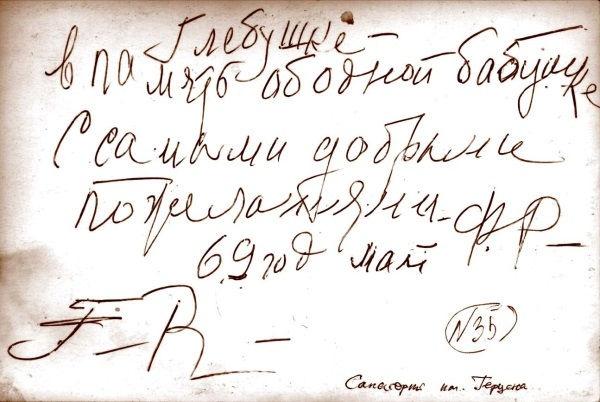 Глебушке –
в память ободной бабушке
С самыми добрыми
пожеланиями – Ф.Р –
69 год май
F – R –
N 35
Санатория им. Герцена